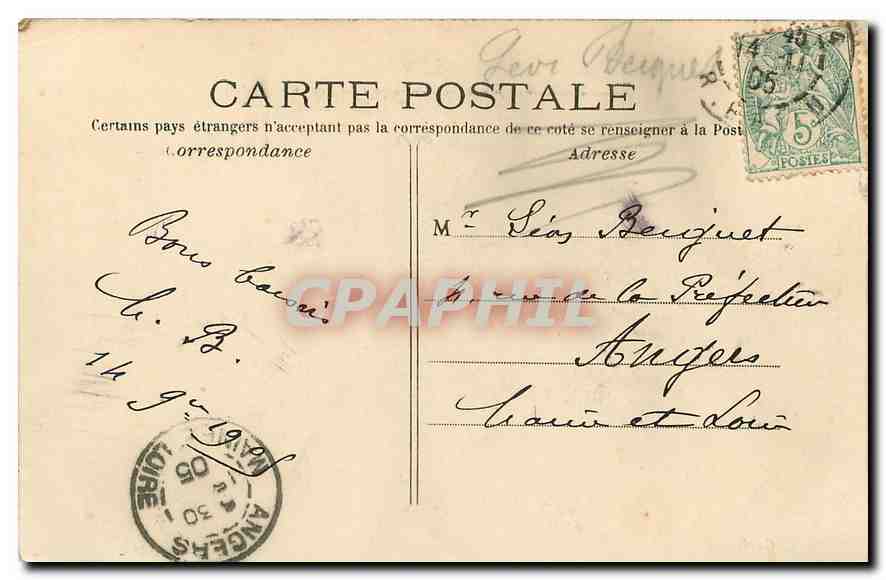 CARTE POSTALE
Certains pays étrangers n'acceptent pas la correspondance de ce coté se renseigner à la Post
Correspondance
Adresse
5
POSTES
05
Bons baisers
B.
14 9bre 1905
Mr Léon Benquet
rue de la Préfecture
Angers
Maine et Loire
ANGERS
MAINE
LOIRE
30
05
CPAPHIL